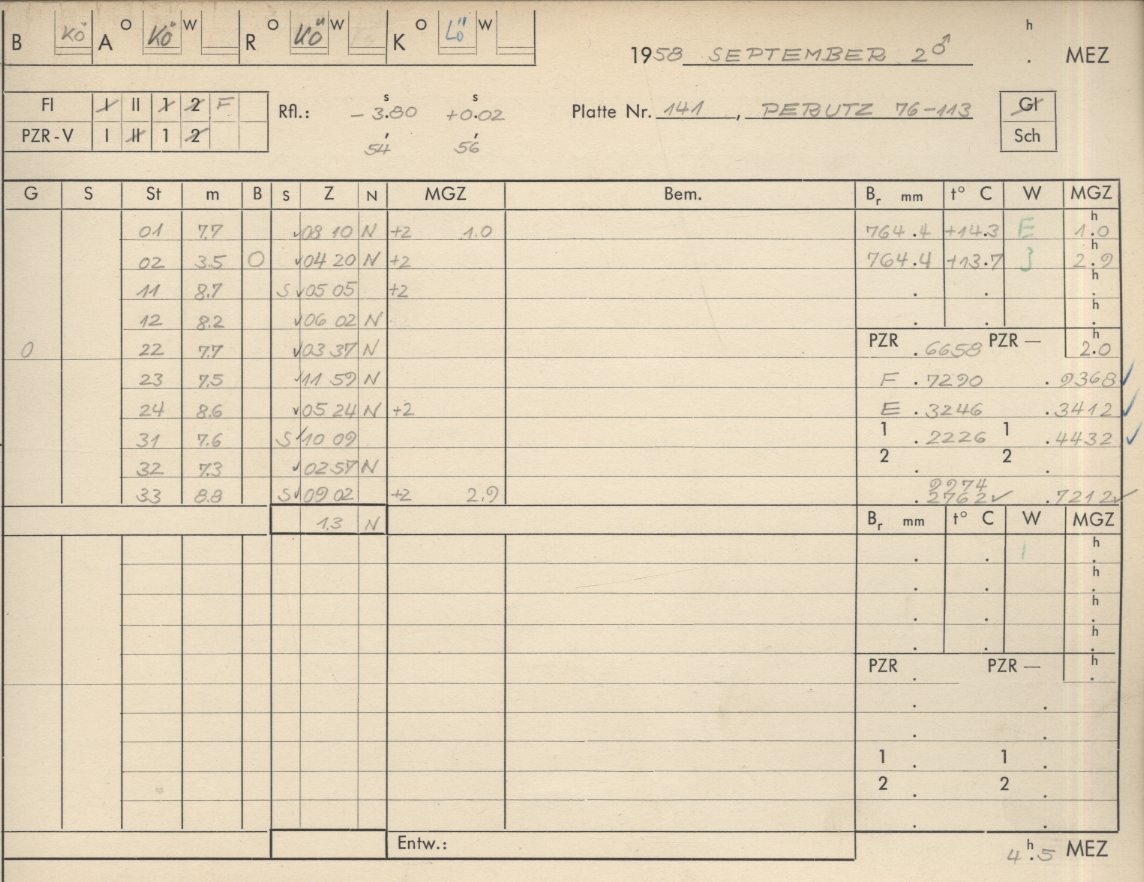 B Kö A O Kö W R O Kö W K O Lö W
1958 SEPTEMBER 2 ♂ h . MEZ
FI I II 1 2 F
PZR-V I II 1 2
Rfl.: - 3.80 s +0.02 s
54 ′ 56 ′
Platte Nr. 141 , PERUTZ 76-113
Gl
Sch
G S St m B S Z N MGZ Bem. Br mm t° C W MGZ
01 7.7 ✓08 10 N +2 1.0 764.4 +14.3 E 1.0 h
02 3.5 O ✓04 20 N +2 764.4 +13.7 2.9 h
11 8.7 S ✓05 05 +2 . . h
12 8.2 ✓06 02 N . . h .
0 22 7.7 ✓03 37 N PZR .6658 PZR — h 2.0
23 7.5 ✓11 59 N F .7290 .9368 ✓
24 8.6 ✓05 24 N +2 E .3246 .3412 ✓
31 7.6 S ✓10 09 1 .2226 1 .4432 ✓
32 7.3 ✓02 57 N 2 . 2 .
33 8.8 S ✓09 02 +2 2.9 9974
.2762 ✓ .7212 ✓
1.3 N Br mm t° C W MGZ
. . h
. . h .
. . h .
. . h .
PZR . PZR — h .
. .
. .
1 . 1 .
2 . 2 .
. .
Entw.: 4 h .5 MEZ